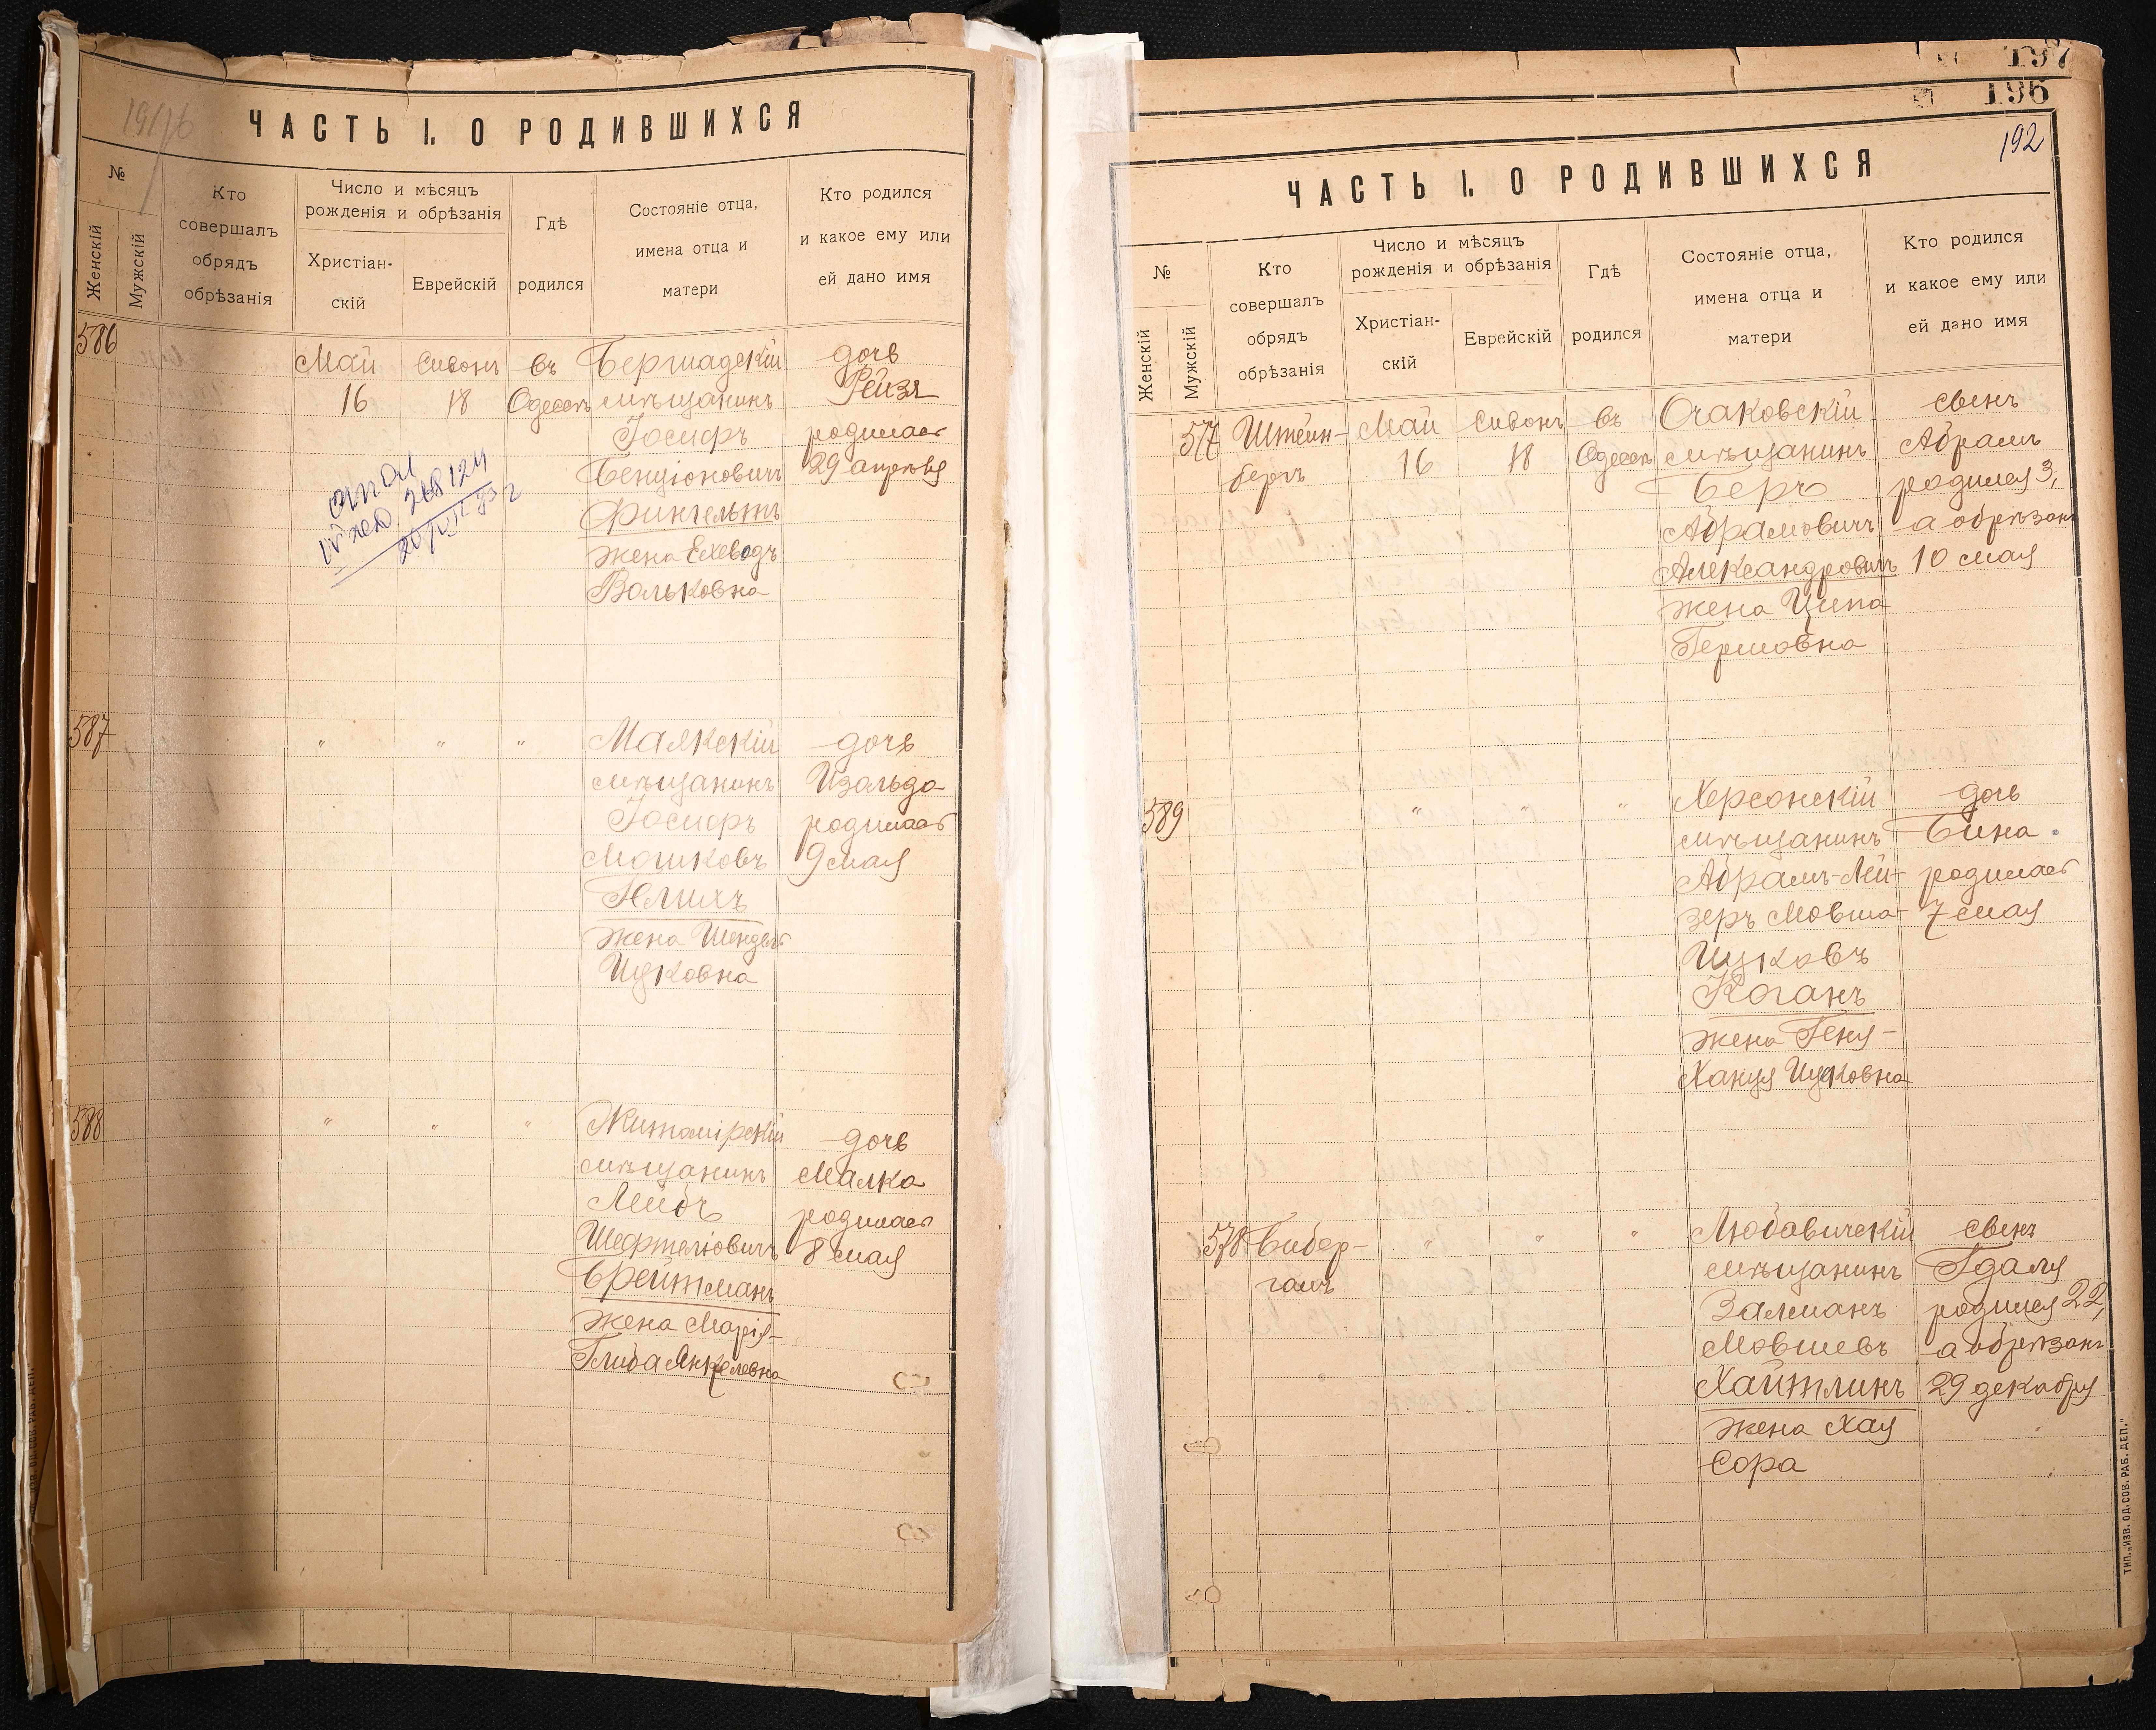 ЧАСТЬ I. О РОДИВШИХСЯ
№
Женскій
Мужскій
Кто
совершалъ
обрядъ
обрѣзанія
Число и мѣсяцъ
рожденія и обрѣзанія
Христіан-
скій
Еврейскій
Гдѣ
родился
Состояніе отца,
имена отца и
матери
Кто родился
и какое ему или
ей дано имя
586
Май
16
Сивонъ
18
въ
Одессѣ
Бершадскій
мѣщанинъ
Іосифъ
Бенціоновичъ
Финкельтъ
жена Ехеведъ
Вольковна
дочь
Рейзя
родилась
29 апрѣля
587
" " "
Маякскій
мѣщанинъ
Іосифъ
Мошковъ
жена Шендля
Ицковна
дочь
Изольда
родилась
9 мая
588
" " "
Житомірскій
мѣщанинъ
Лейбъ
Шефтеліовичъ
Брейтманъ
жена Марія-
Глиба Янкелевна
дочь
Малка
родилась
8 мая
197
196
192
ЧАСТЬ I. О РОДИВШИХСЯ
№
Женскій
Мужскій
Кто
совершалъ
обрядъ
обрѣзанія
Число и мѣсяцъ
рожденія и обрѣзанія
Христіан-
скій
Еврейскій
Гдѣ
родился
Состояніе отца,
имена отца и
матери
Кто родился
и какое ему или
ей дано имя
577
Штейн-
бергъ
Май
16
Сивонъ
18
въ
Одессѣ
Очаковскій
мѣщанинъ
Беръ
Абрамовичъ
Александровичъ
жена Ципа
Гершовна
сынъ
Абрамъ
родился 3,
а обрѣзанъ
10 мая
589
" " "
Херсонскій
мѣщанинъ
Абрамъ-Лей-
зеръ Мовша-
Ицковъ
Коганъ
жена Геня-
Ханця Ицковна
дочь
Бина
родилась
7 мая
578
Бибер-
галъ
" " "
Любавичскій
мѣщанинъ
Залманъ
Мовшевъ
Хайтлинъ
жена Хая
Сора
сынъ
Гдаля
родился 22,
а обрѣзанъ
29 декабря
ТИП. „ИЗВ. ОД. СОВ. РАБ. ДЕП."